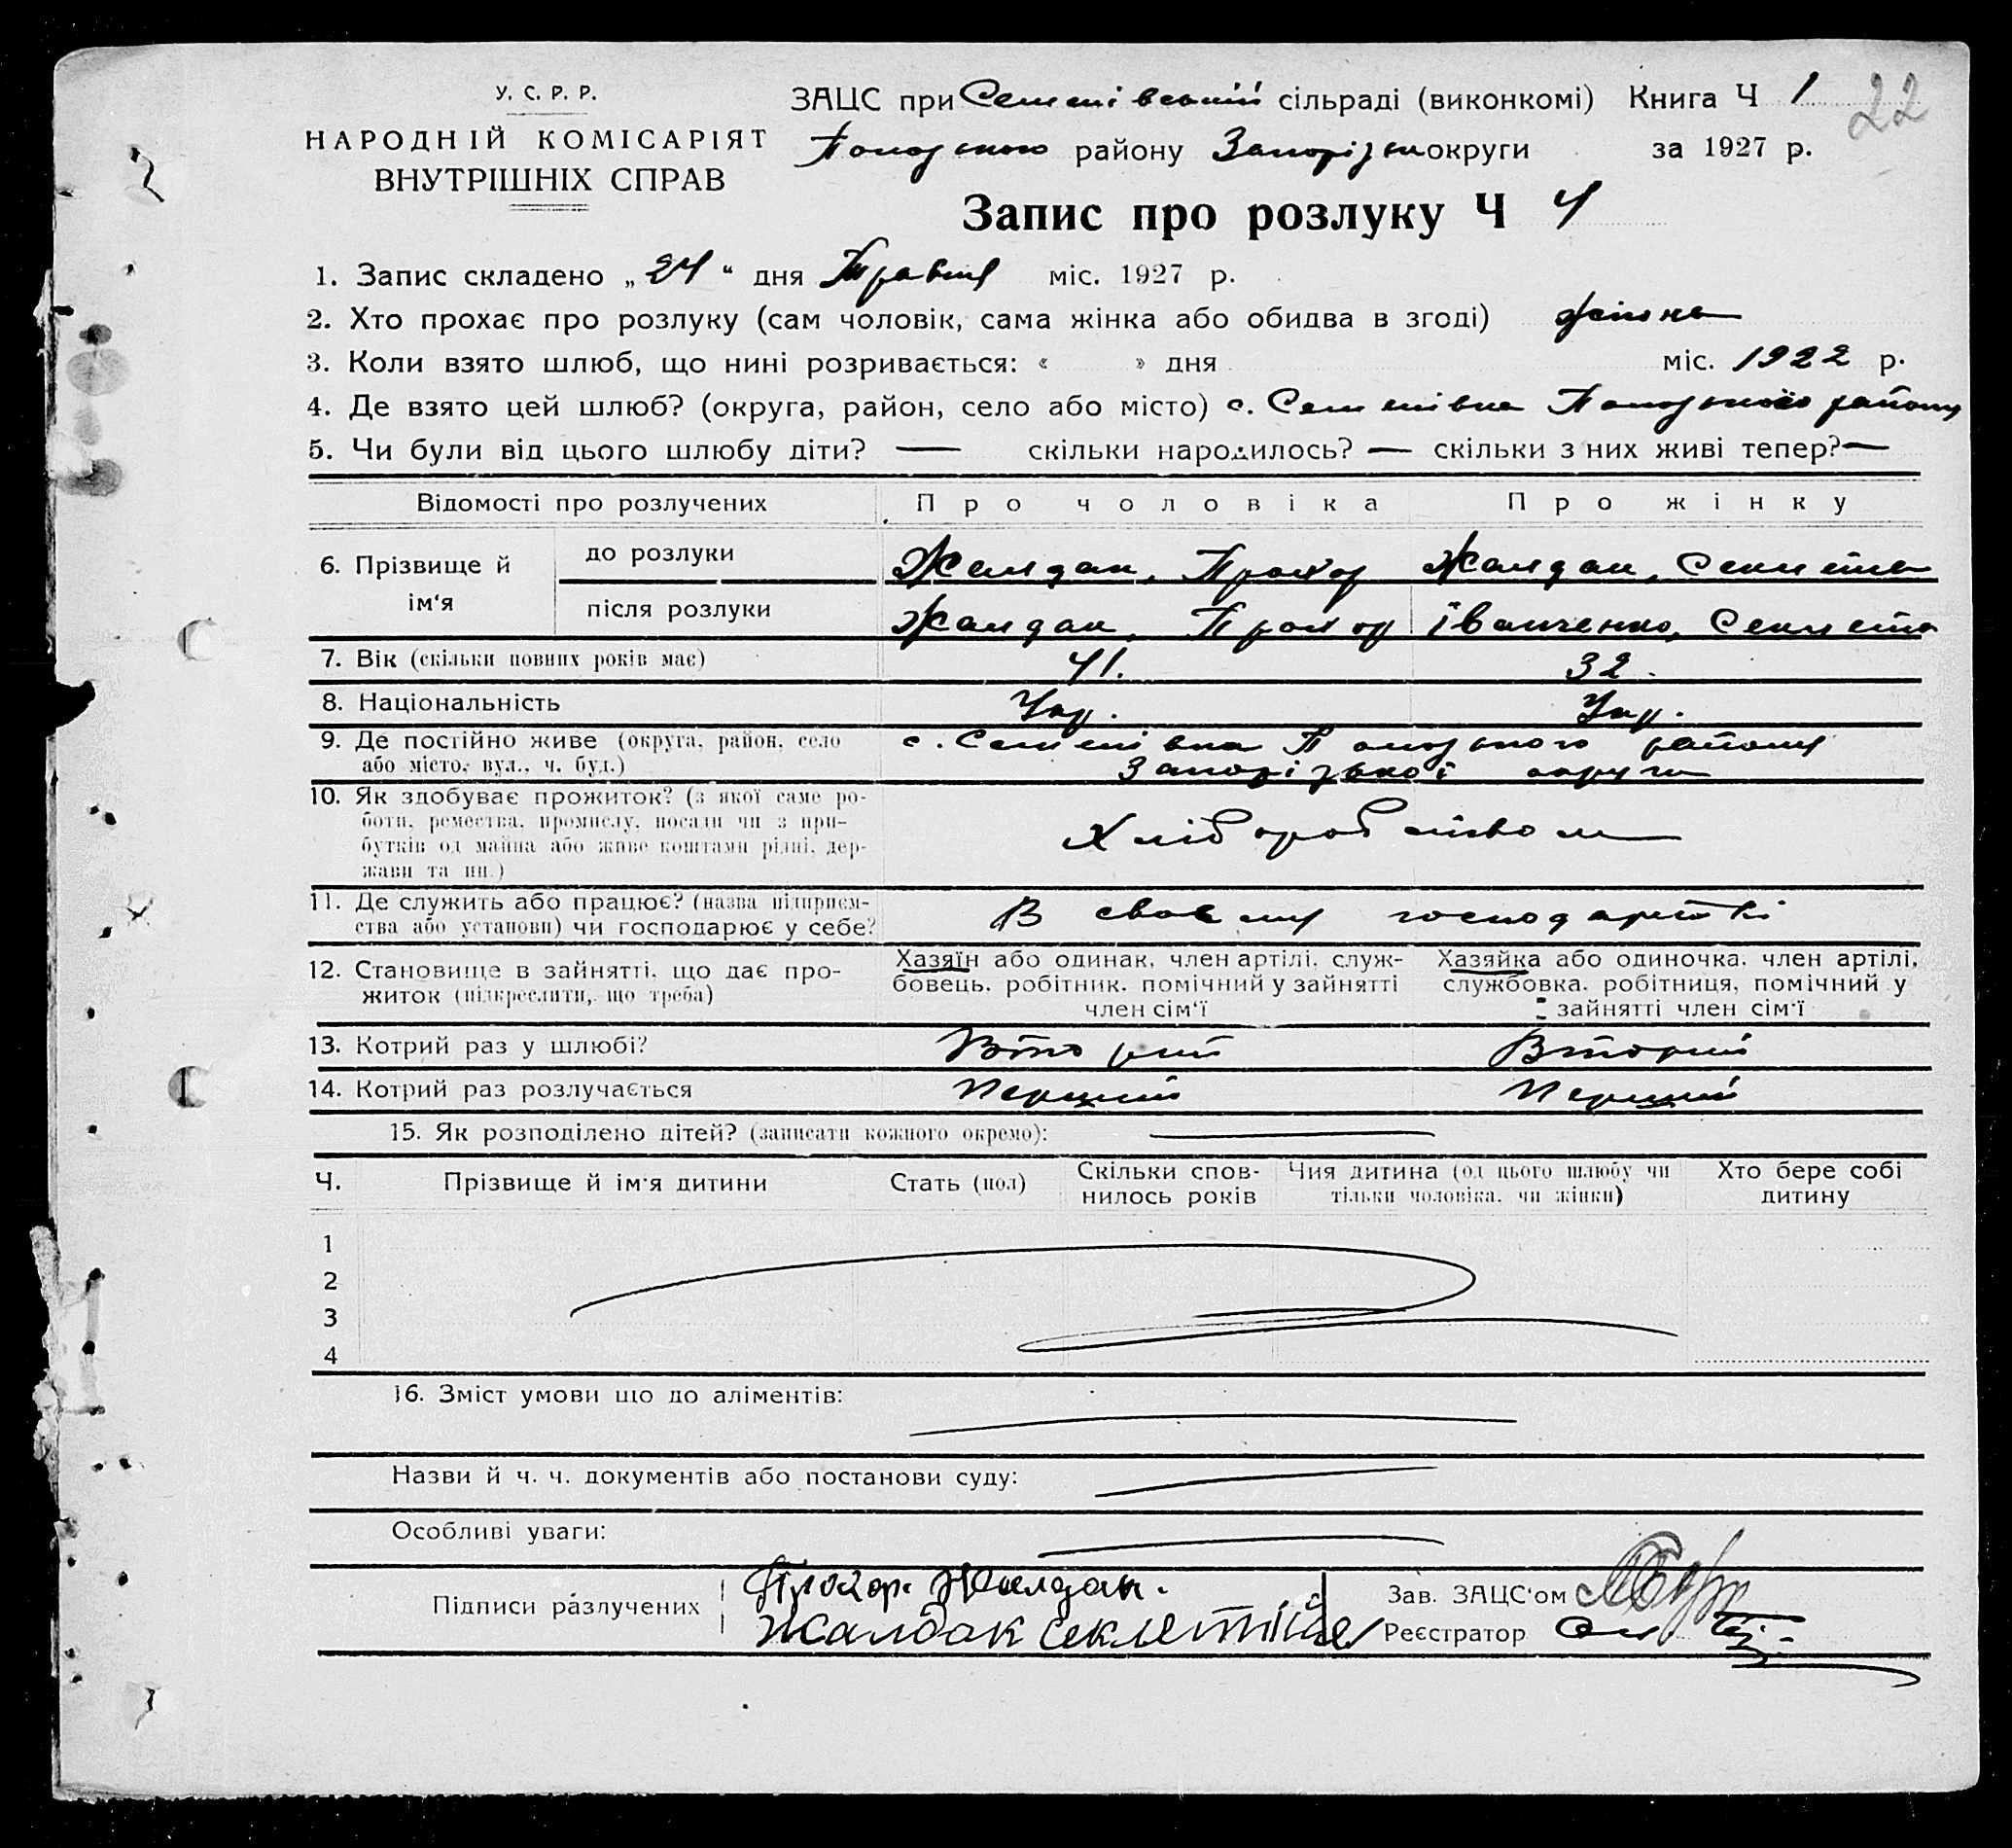 22
У. С. Р. Р.
НАРОДНІЙ КОМІСАРІЯТ
ВНУТРІШНІХ СПРАВ
ЗАЦС при Семенівській сільраді (виконкомі) Книга Ч 1
Пологського району Запорізьк округи за 1927 р.
Запис про розлуку Ч 4
1. Запис складено „24“ дня Травня міс. 1927 р.
2. Хто прохає про розлуку (сам чоловік, сама жінка або обидва в згоді) жінка
3. Коли взято шлюб, що нині розривається: « » дня міс. 1922 р.
4. Де взято цей шлюб? (округа, район, село або місто) с. Семенівка Пологського району
5. Чи були від цього шлюбу діти? — скільки народилось? — скільки з них живі тепер? —
Відомості про розлучених Про чоловіка Про жінку
6. Прізвище й ім‘я
до розлуки Жалдак, Прохор Жалдак, Секлета
після розлуки Жалдак, Прохор Іванченко, Секлета
7. Вік (скільки повних років має) 41. 32.
8. Національність Укр. Укр.
9. Де постійно живе (округа, район, село с. Семенівка Пологського району
або місто, вул., ч. буд.) Запорізької округи
10. Як здобуває прожиток? (з якої саме ро-
боти, ремества, промислу, посади чи з при-
бутків од майна або живе коштами рідні, дер-
жави та ин.) Хліборобством
11. Де служить або працює? (назва підприєм-
ства або установи) чи господарює у себе? В своєму господарстві
12. Становище в зайнятті, що дає про-
житок (підкреслити, що треба)
Хазяїн або одинак, член артілі, служ-
бовець, робітник, помічний у зайнятті
член сім‘ї
Хазяйка або одиночка, член артілі,
службовка, робітниця, помічний у
зайнятті член сім‘ї
13. Котрий раз у шлюбі? Вторий Вторий
14. Котрий раз розлучається Перший Перший
15. Як розподілено дітей? (записати кожного окремо): —
Ч. Прізвище й ім‘я дитини Стать (пол) Скільки спов-
нилось років Чия дитина (од цього шлюбу чи
тільки чоловіка, чи жінки) Хто бере собі
дитину
1
2
3
4
16. Зміст умови що до аліментів: —
Назви й ч. ч. документів або постанови суду: —
Особливі уваги: —
Підписи разлучених
Прохор Жалдак.
Жалдак
Зав. ЗАЦС‘ом
Реєстратор